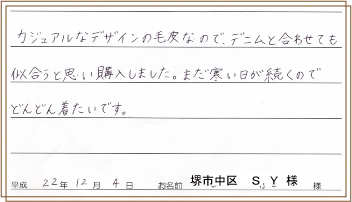 カジュアルなデザインの毛皮なので、デニムと合わせても
似合うと思い購入しました。まだ寒い日が続くので
どんどん着たいです。
平成 22年 12月 4日 お名前 堺市中区 S,Y 様 様